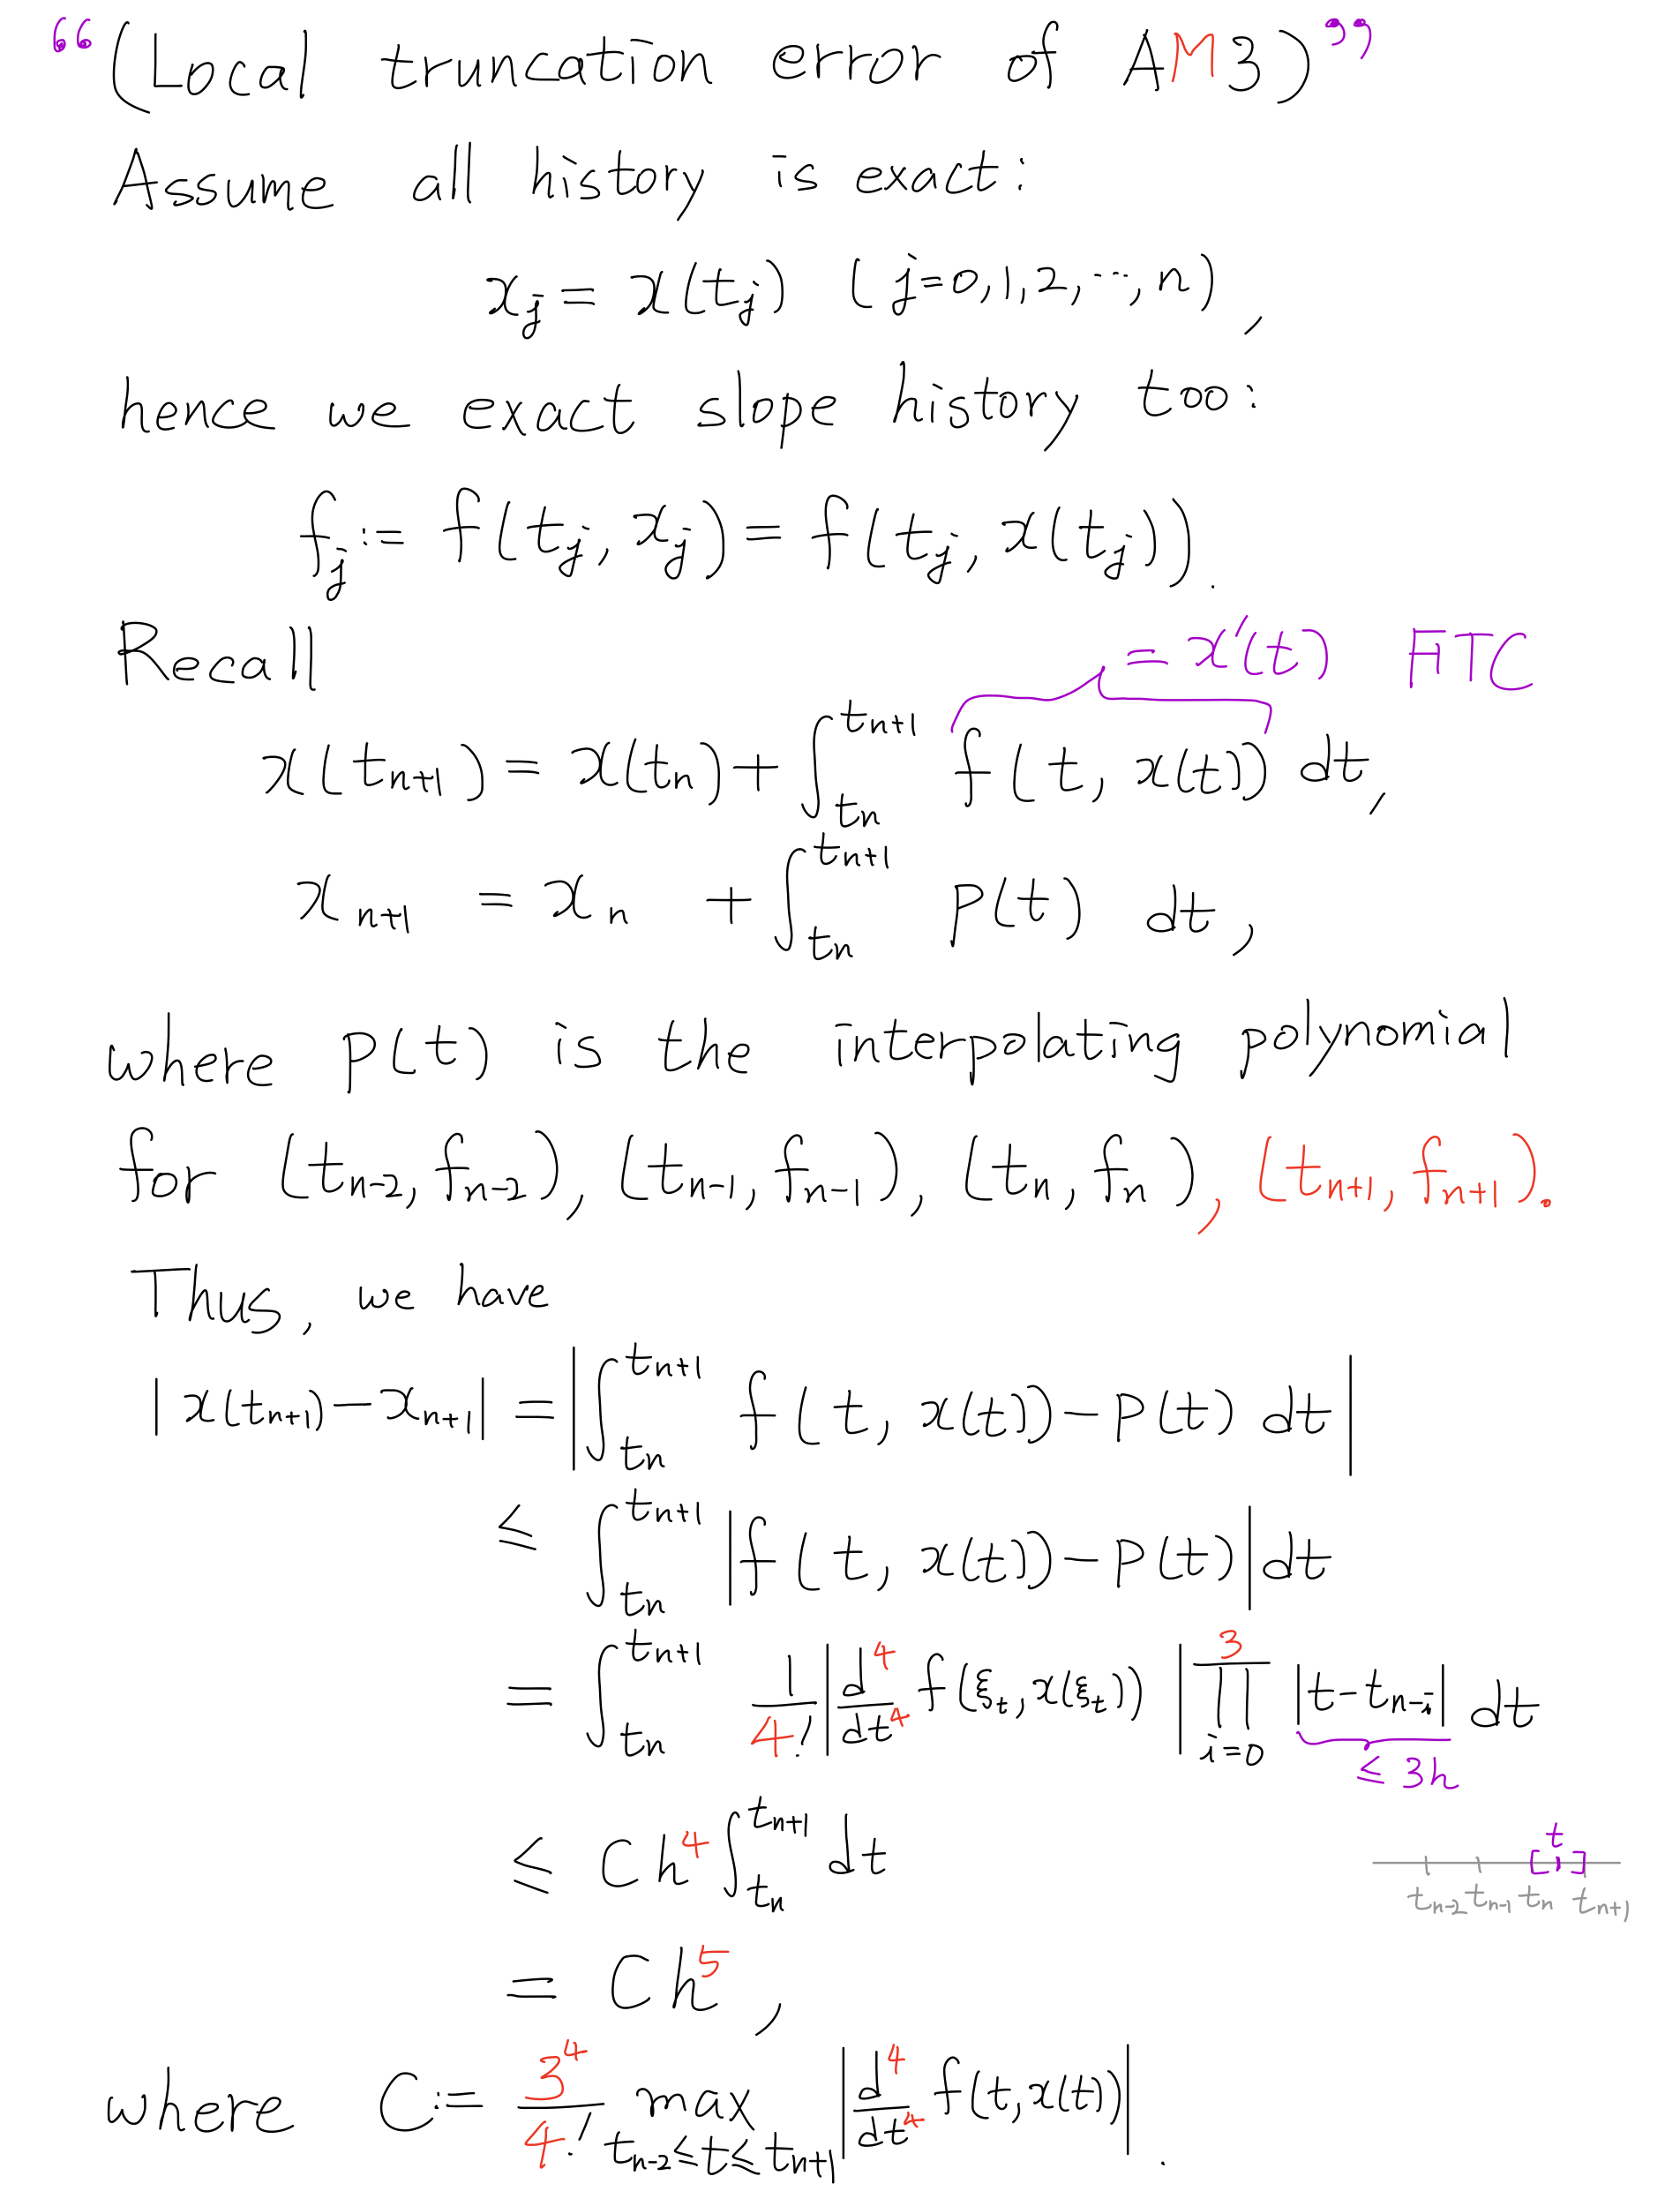 “(Local truncation error of AM3)”
Assume all history is exact:
x_j = x(t_j) (j=0,1,2,⋯,n),
hence we exact slope history too:
f_j := f(t_j, x_j) = f(t_j, x(t_j)).
Recall = x'(t) FTC
x(t_{n+1}) = x(t_n) + ∫_{t_n}^{t_{n+1}} f(t, x(t)) dt,
x_{n+1} = x_n + ∫_{t_n}^{t_{n+1}} p(t) dt,
where p(t) is the interpolating polynomial
for (t_{n-2}, f_{n-2}), (t_{n-1}, f_{n-1}), (t_n, f_n), (t_{n+1}, f_{n+1}).
Thus, we have
|x(t_{n+1}) - x_{n+1}| = |∫_{t_n}^{t_{n+1}} f(t, x(t)) - p(t) dt|
≤ ∫_{t_n}^{t_{n+1}} |f(t, x(t)) - p(t)| dt
= ∫_{t_n}^{t_{n+1}} 1/4! |d^4/dt^4 f(ξ_t, x(ξ_t))| ∏_{i=0}^{3} |t - t_{n-i}| dt
≤ 3h
≤ Ch^4 ∫_{t_n}^{t_{n+1}} dt
t
t_{n-2} t_{n-1} t_n t_{n+1}
= Ch^5,
where C := 3^4/4! max_{t_{n-2} ≤ t ≤ t_{n+1}} |d^4/dt^4 f(t, x(t))|.